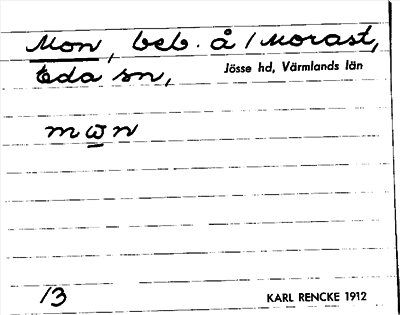 Mon, beb. å / Morast,
Eda sn, Jösse hd, Värmlands län
mωn
13
KARL RENCKE 1912